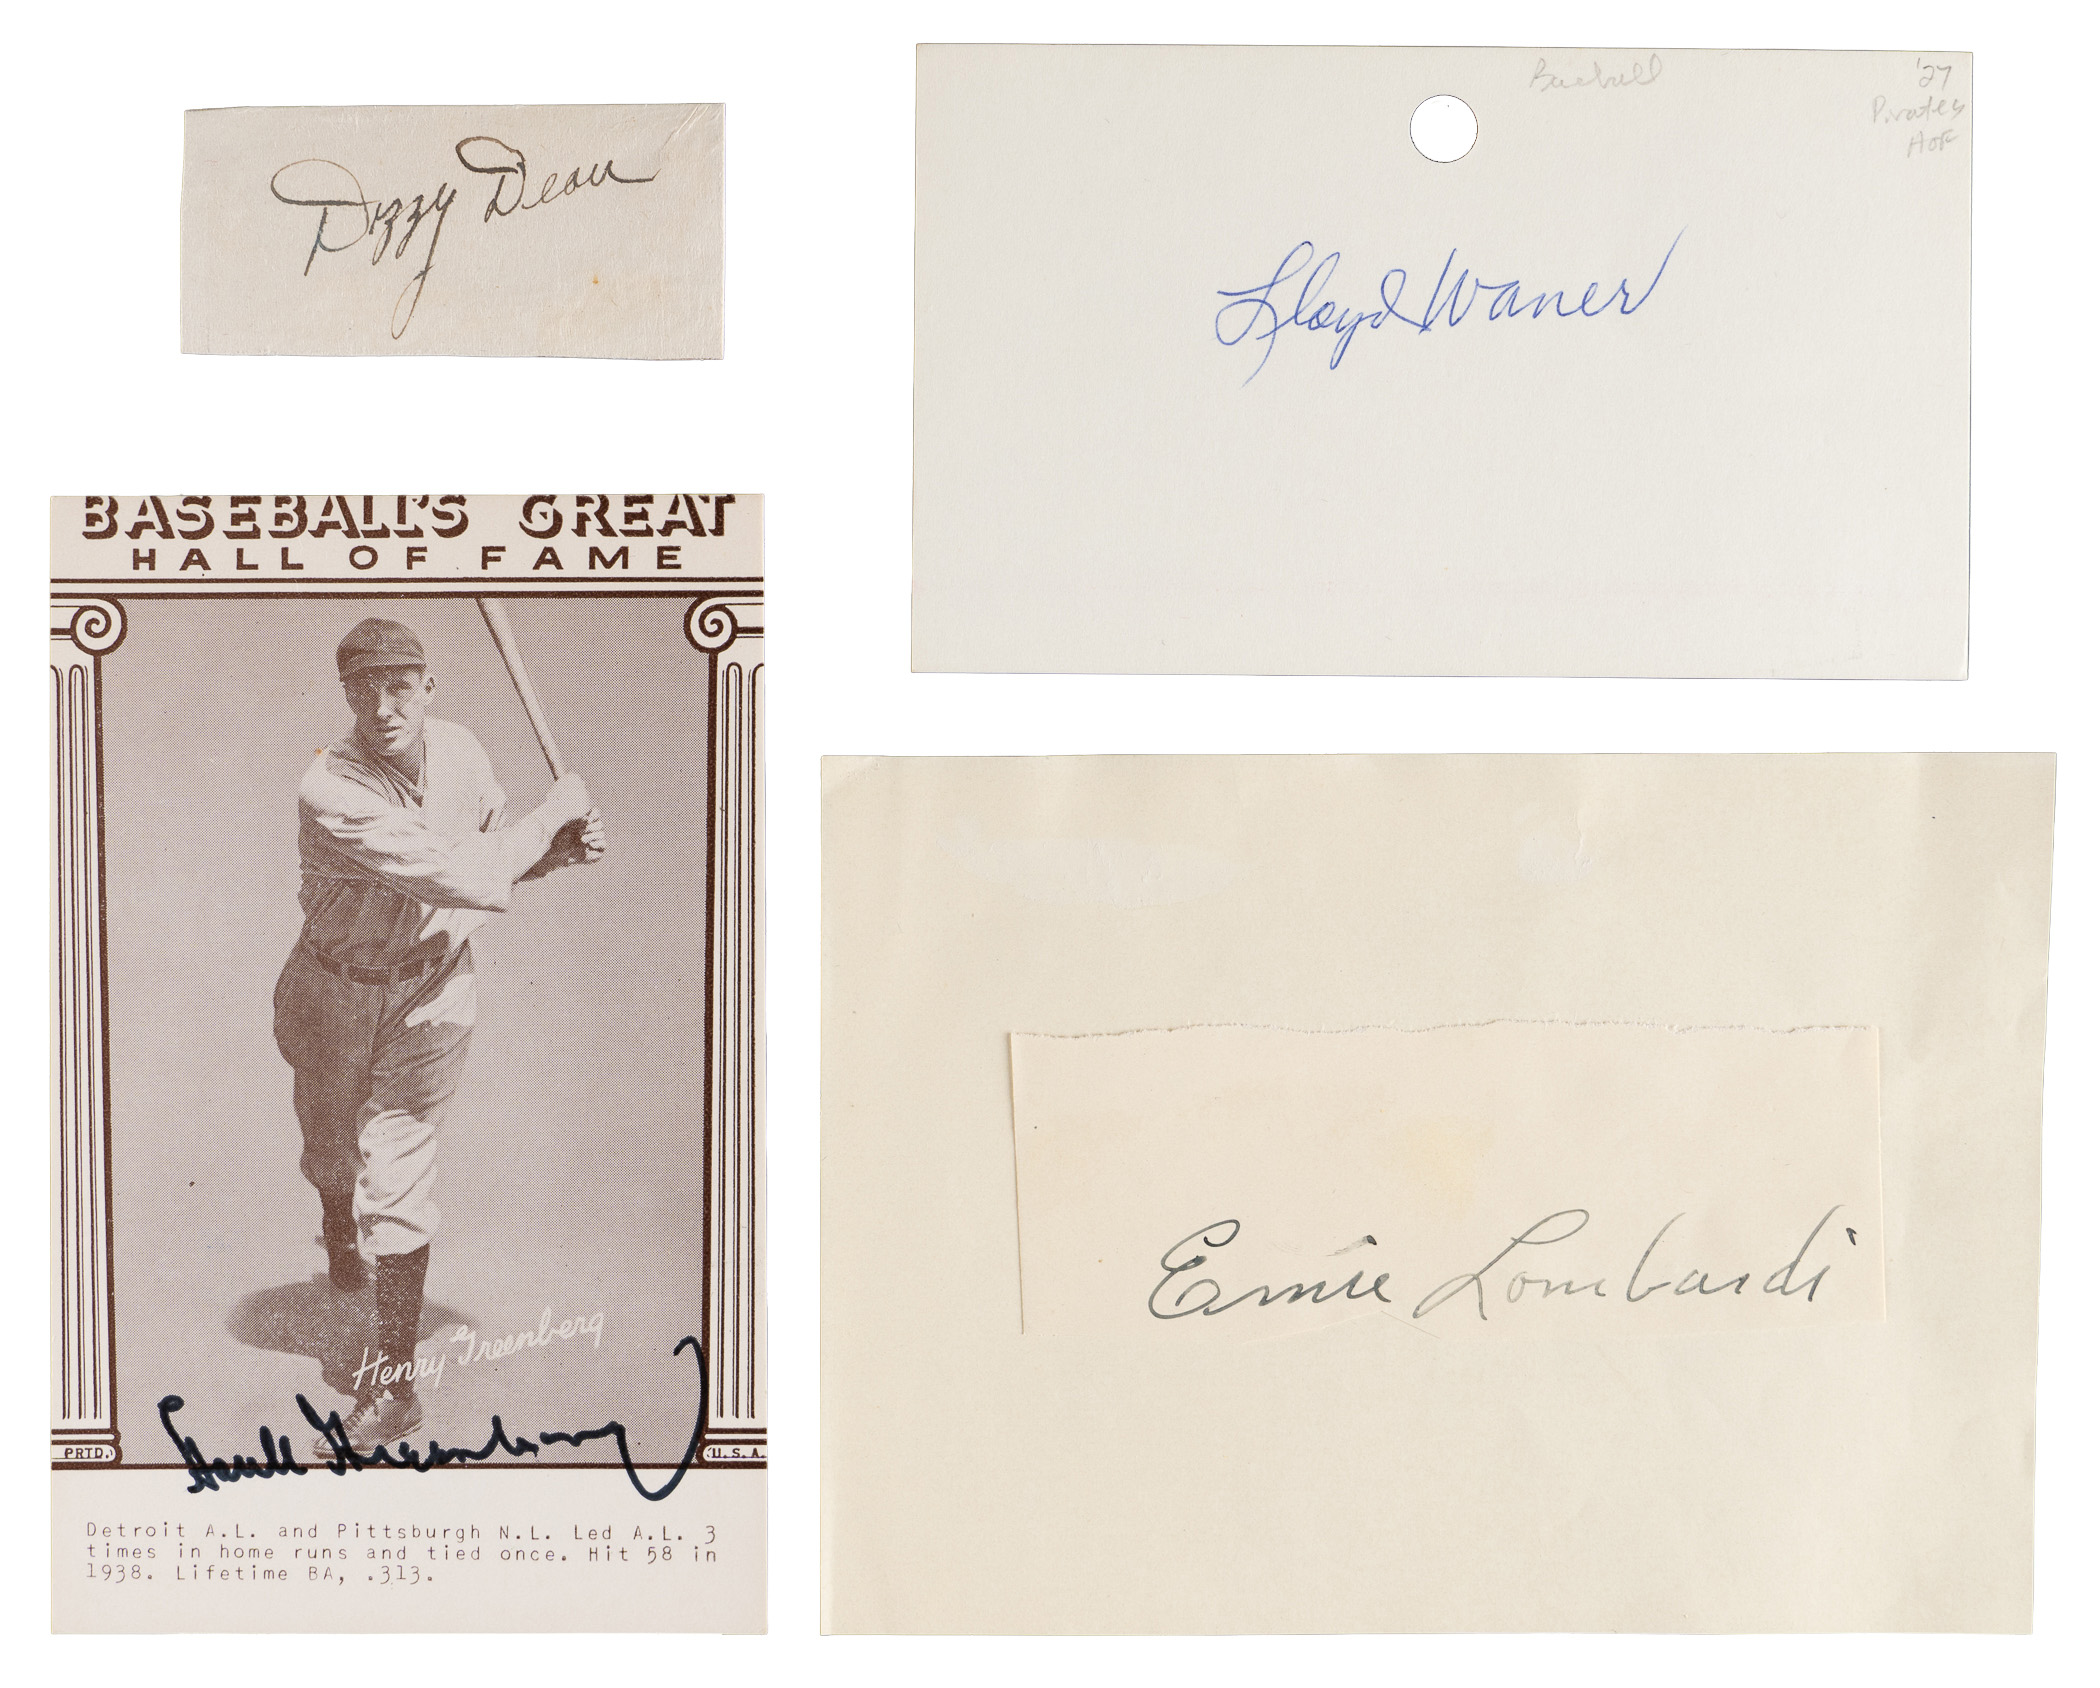 Dizzy Dean
Baseball
'27
Pirates
HOF
Lloyd Waner
BASEBALL'S GREAT
HALL OF FAME
Henry Greenberg
Hank Greenberg
PRTD.
U.S.A.
Detroit A.L. and Pittsburgh N.L. Led A.L. 3
times in home runs and tied once. Hit 58 in
1938. Lifetime BA, .313.
Ernie Lombardi